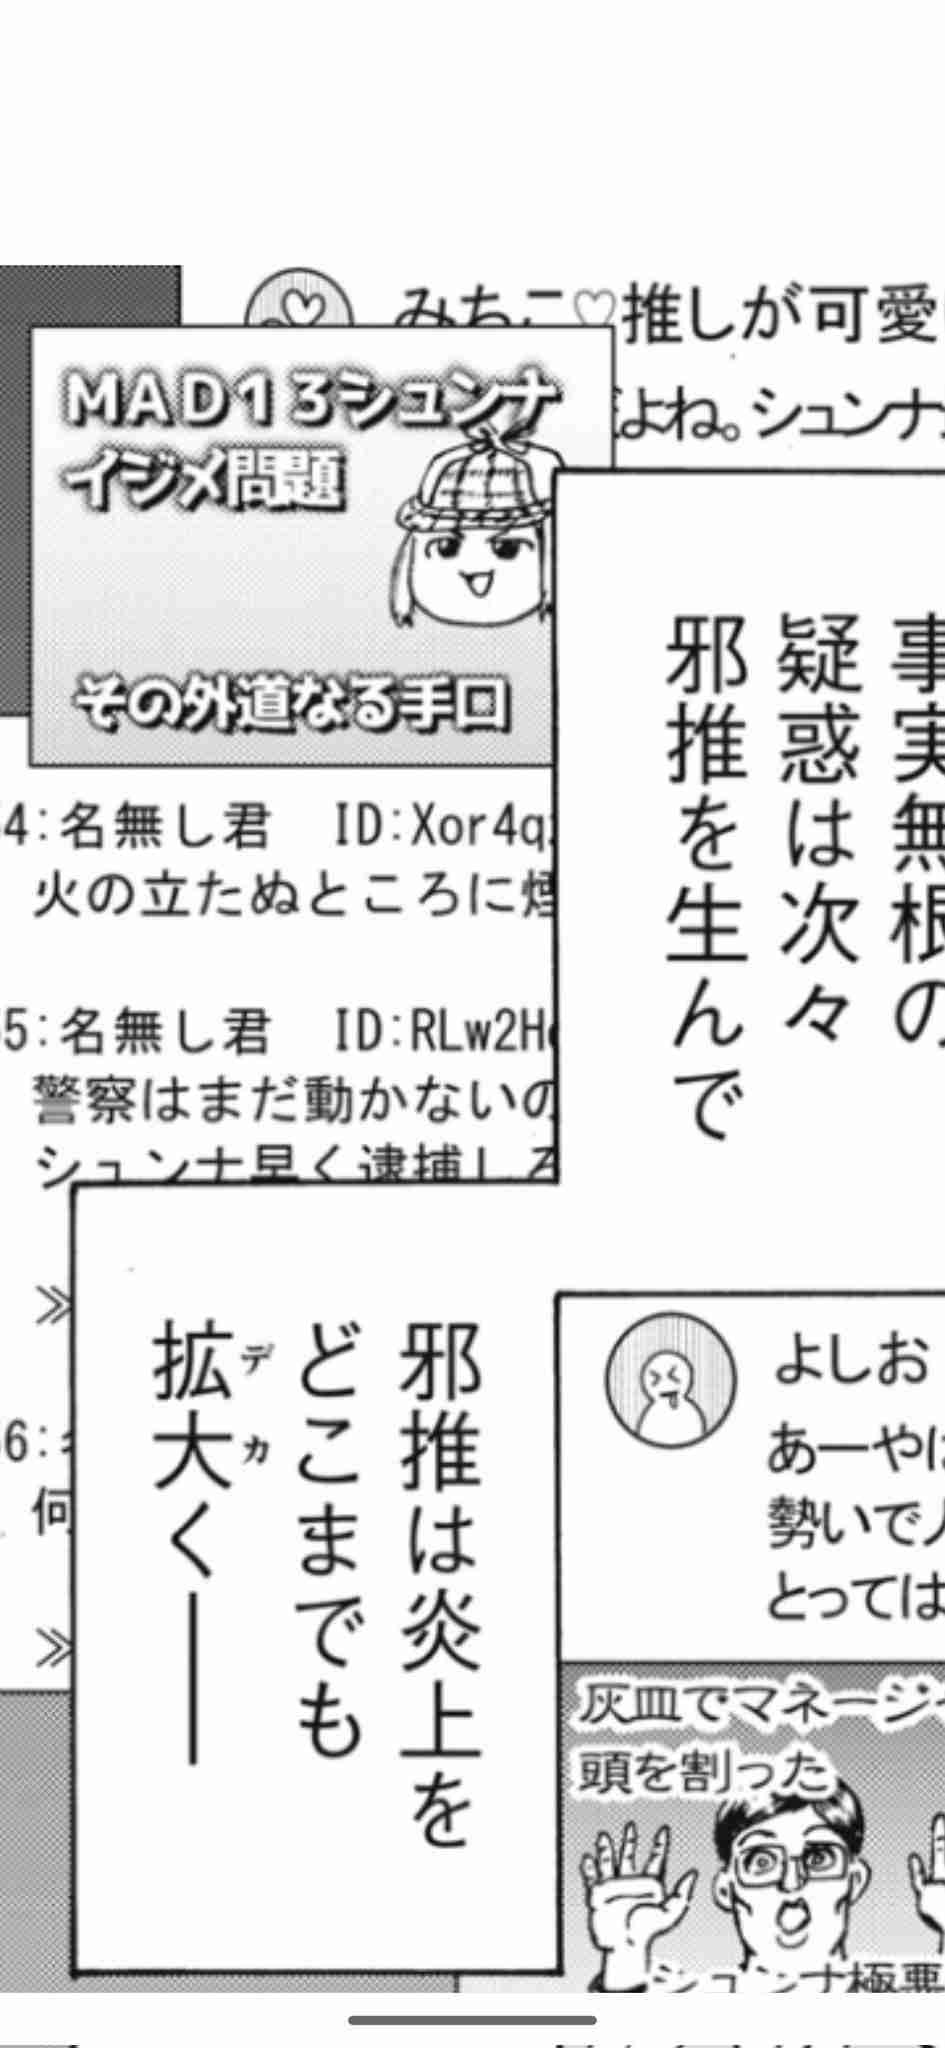 みちこ♡推しが可愛
よね。シュンナ
MAD13シュンナ
イジメ問題
その外道なる手口
事実無根の
疑惑は次々
邪推を生んで
4:名無し君 ID:Xor4q
火の立たぬところに煙
5:名無し君 ID:RLw2H
警察はまだ動かないの
シュンナ早く逮捕しろ
≫
6:
何
≫
邪推は炎上を
どこまでも
拡大く――
デカ
よしお
あーやは
勢いで人
とっては
灰皿でマネージャ
頭を割った
シュンナ極悪